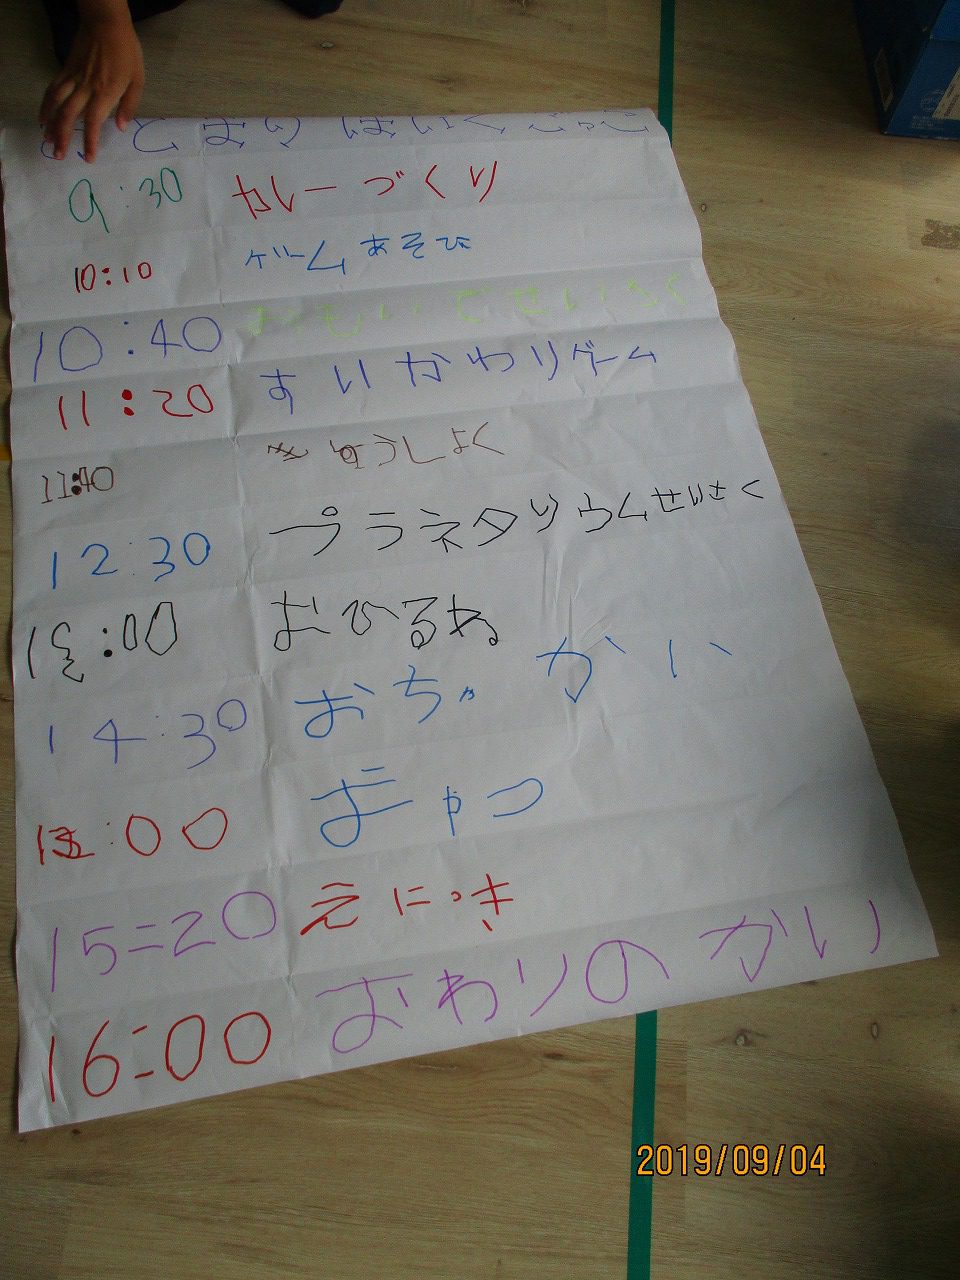 おとまりほいくごっこ
9:30 カレーづくり
10:10 ゲームあそび
10:40 おもいでせいさく
11:20 すいかわりゲーム
11:40 きゅうしょく
12:30 プラネタリウムせいさく
13:00 おひるね
14:30 おちゃかい
15:00 おやつ
15=20 えにっき
16=00 おわりのかい
2019/09/04